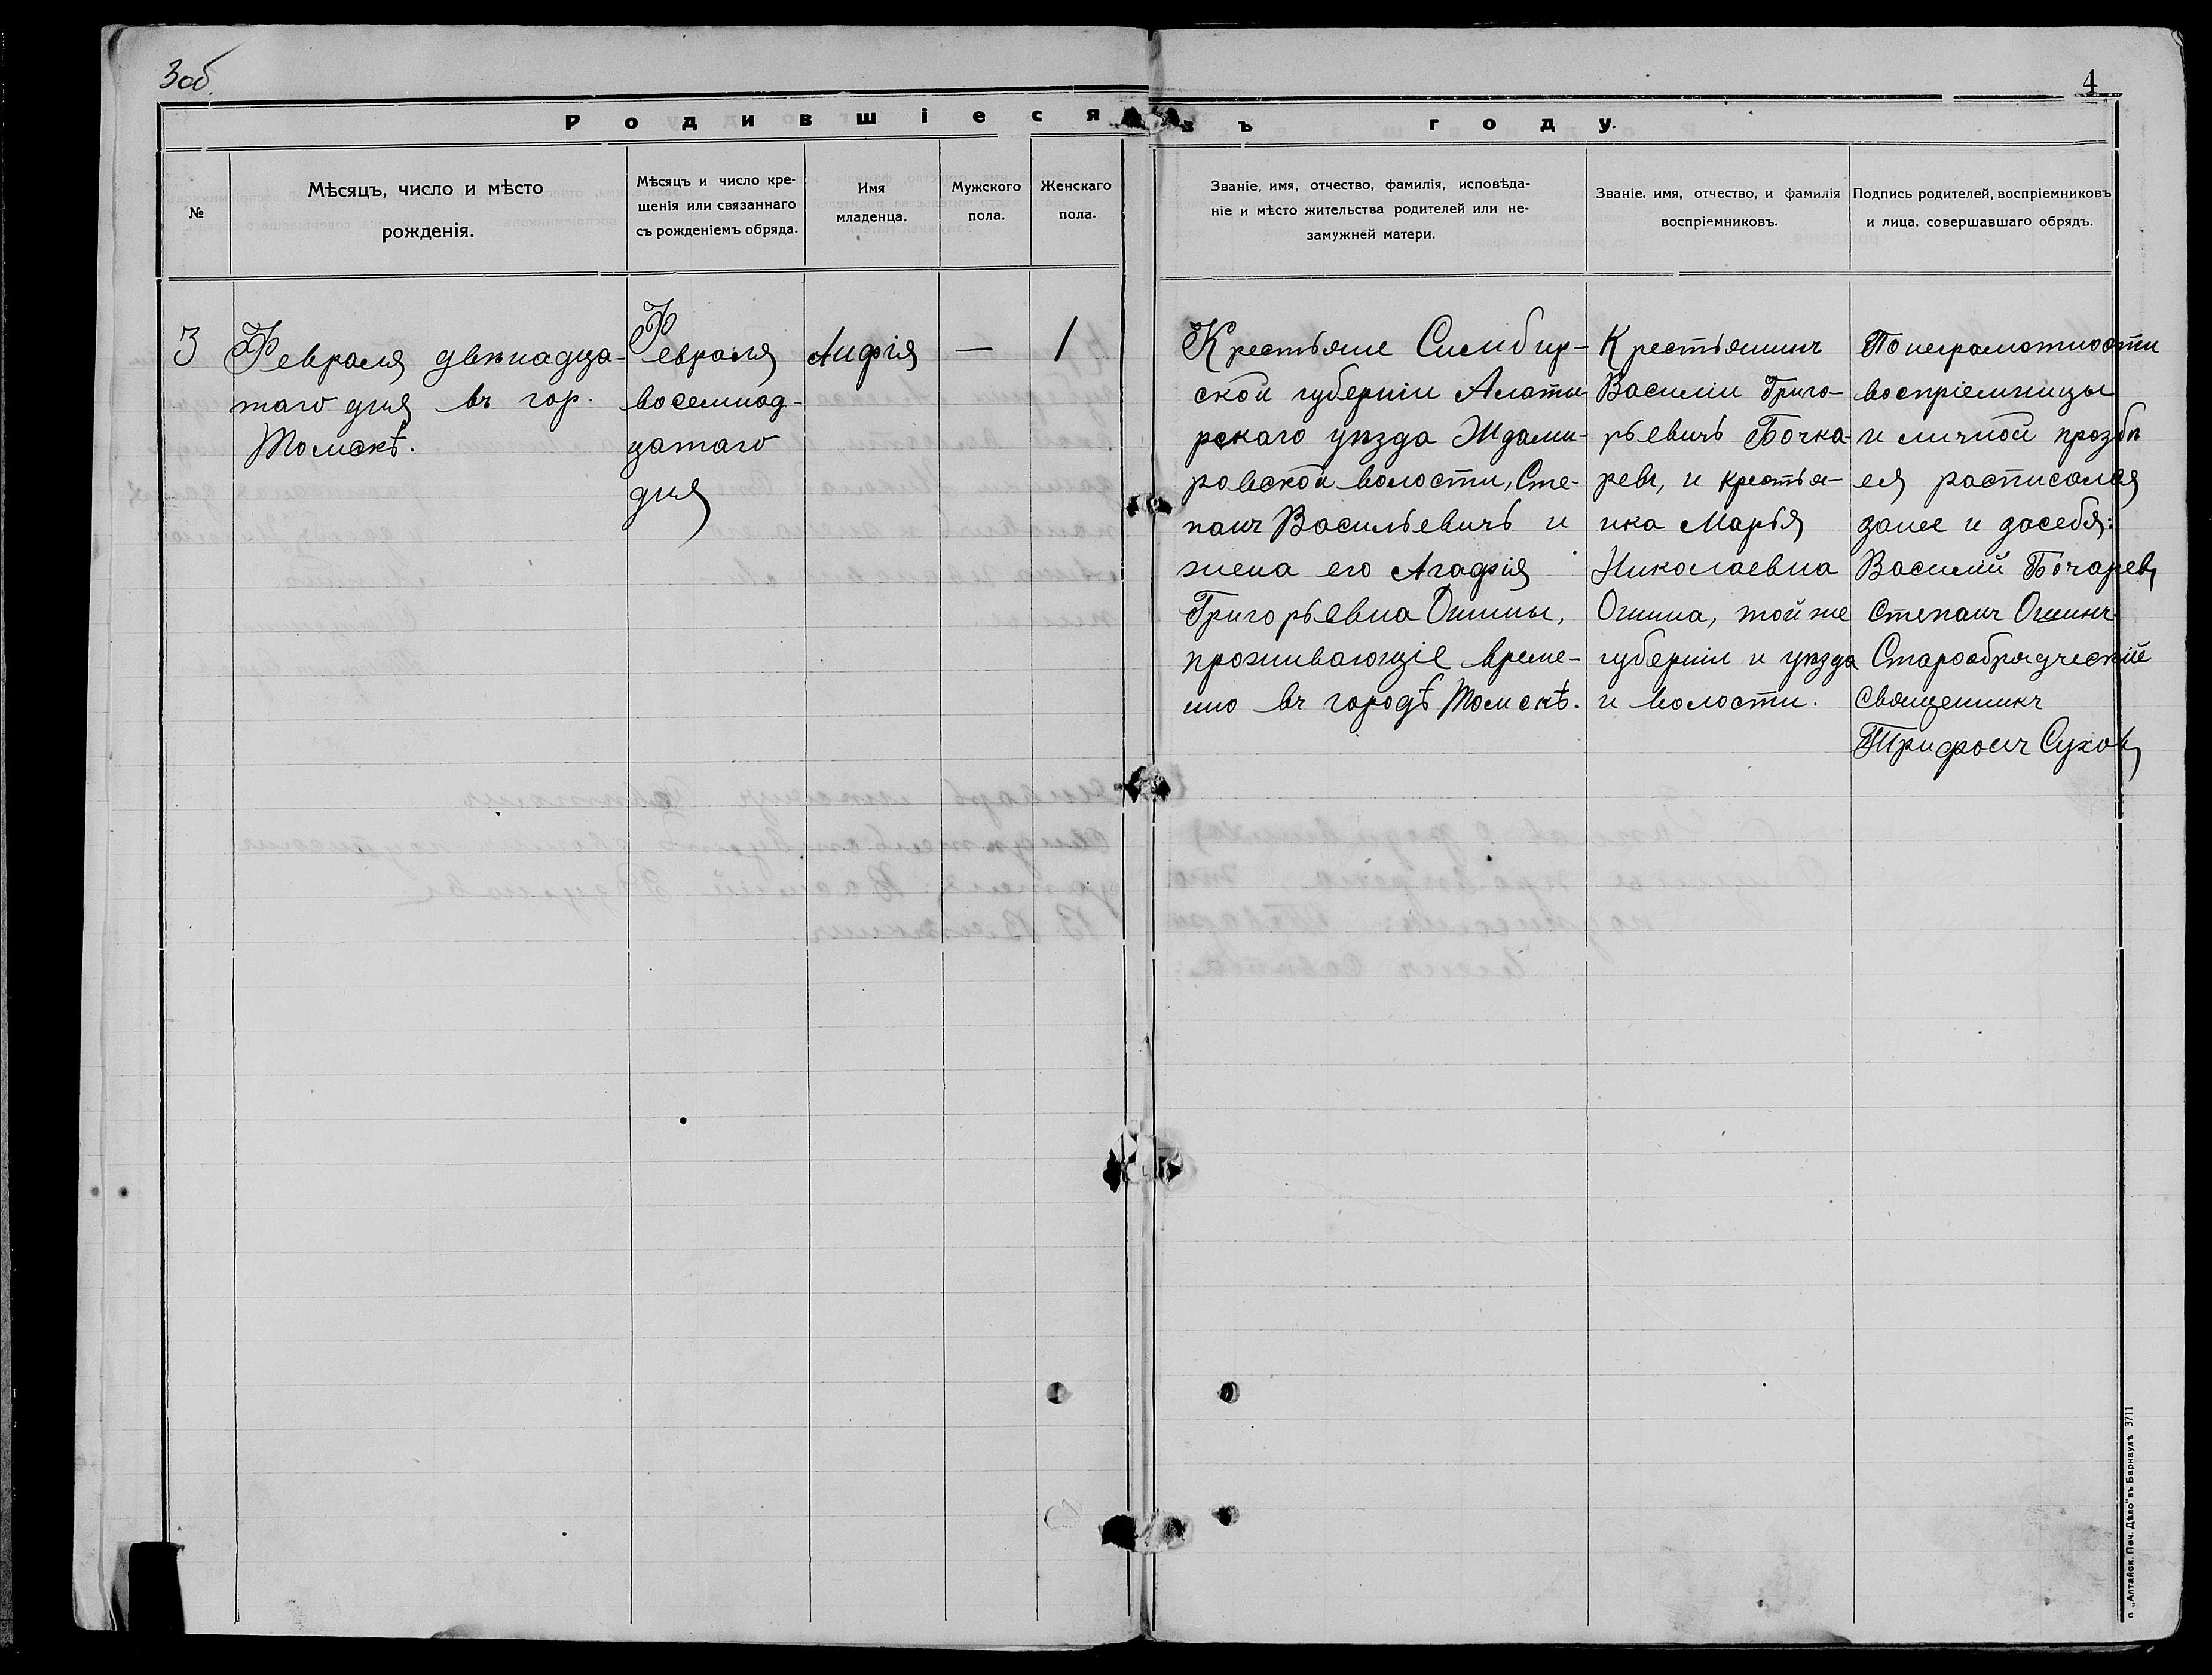 3 об.
4
Родившіеся въ году.
№
Мѣсяцъ, число и мѣсто
рожденія.
Мѣсяцъ и число кре-
щенія или связаннаго
съ рожденіемъ обряда.
Имя
младенца.
Мужского
пола.
Женскаго
пола.
Званіе, имя, отчество, фамилія, исповѣда-
ніе и мѣсто жительства родителей или не-
замужней матери.
Званіе, имя, отчество, и фамилія
воспріемниковъ.
Подпись родителей, воспріемниковъ
и лица, совершавшаго обрядъ.
3
Февраля двѣнадца-
таго дня въ гор.
Томскѣ.
Февраля
восемнад-
цатаго
дня
Анфія
—
1
Крестьяне Симбир-
ской губерніи Алаты-
рскаго уѣзда Ждами-
ровской волости, Сте-
панъ Васильевичъ и
жена его Агафія
Григорьевна Ошины,
проживающіе време-
нно въ городѣ Томскѣ.
Крестьянинъ
Василіи Григо-
рьевичъ Бочка-
ревъ, и крестья-
нка Марья
Николаевна
Ошина, той же
губерніи и уѣзда
и волости.
По неграмотности
воспріемницы
и личной прозбѣ
ея расписался
занее и засебя:
Василій Бочарев
Степанъ Ошинъ
Старообрядческій
священникъ
Трифонъ Сухов
п. „Алтайск. Печ. Дѣло" въ Барнаулѣ 3711